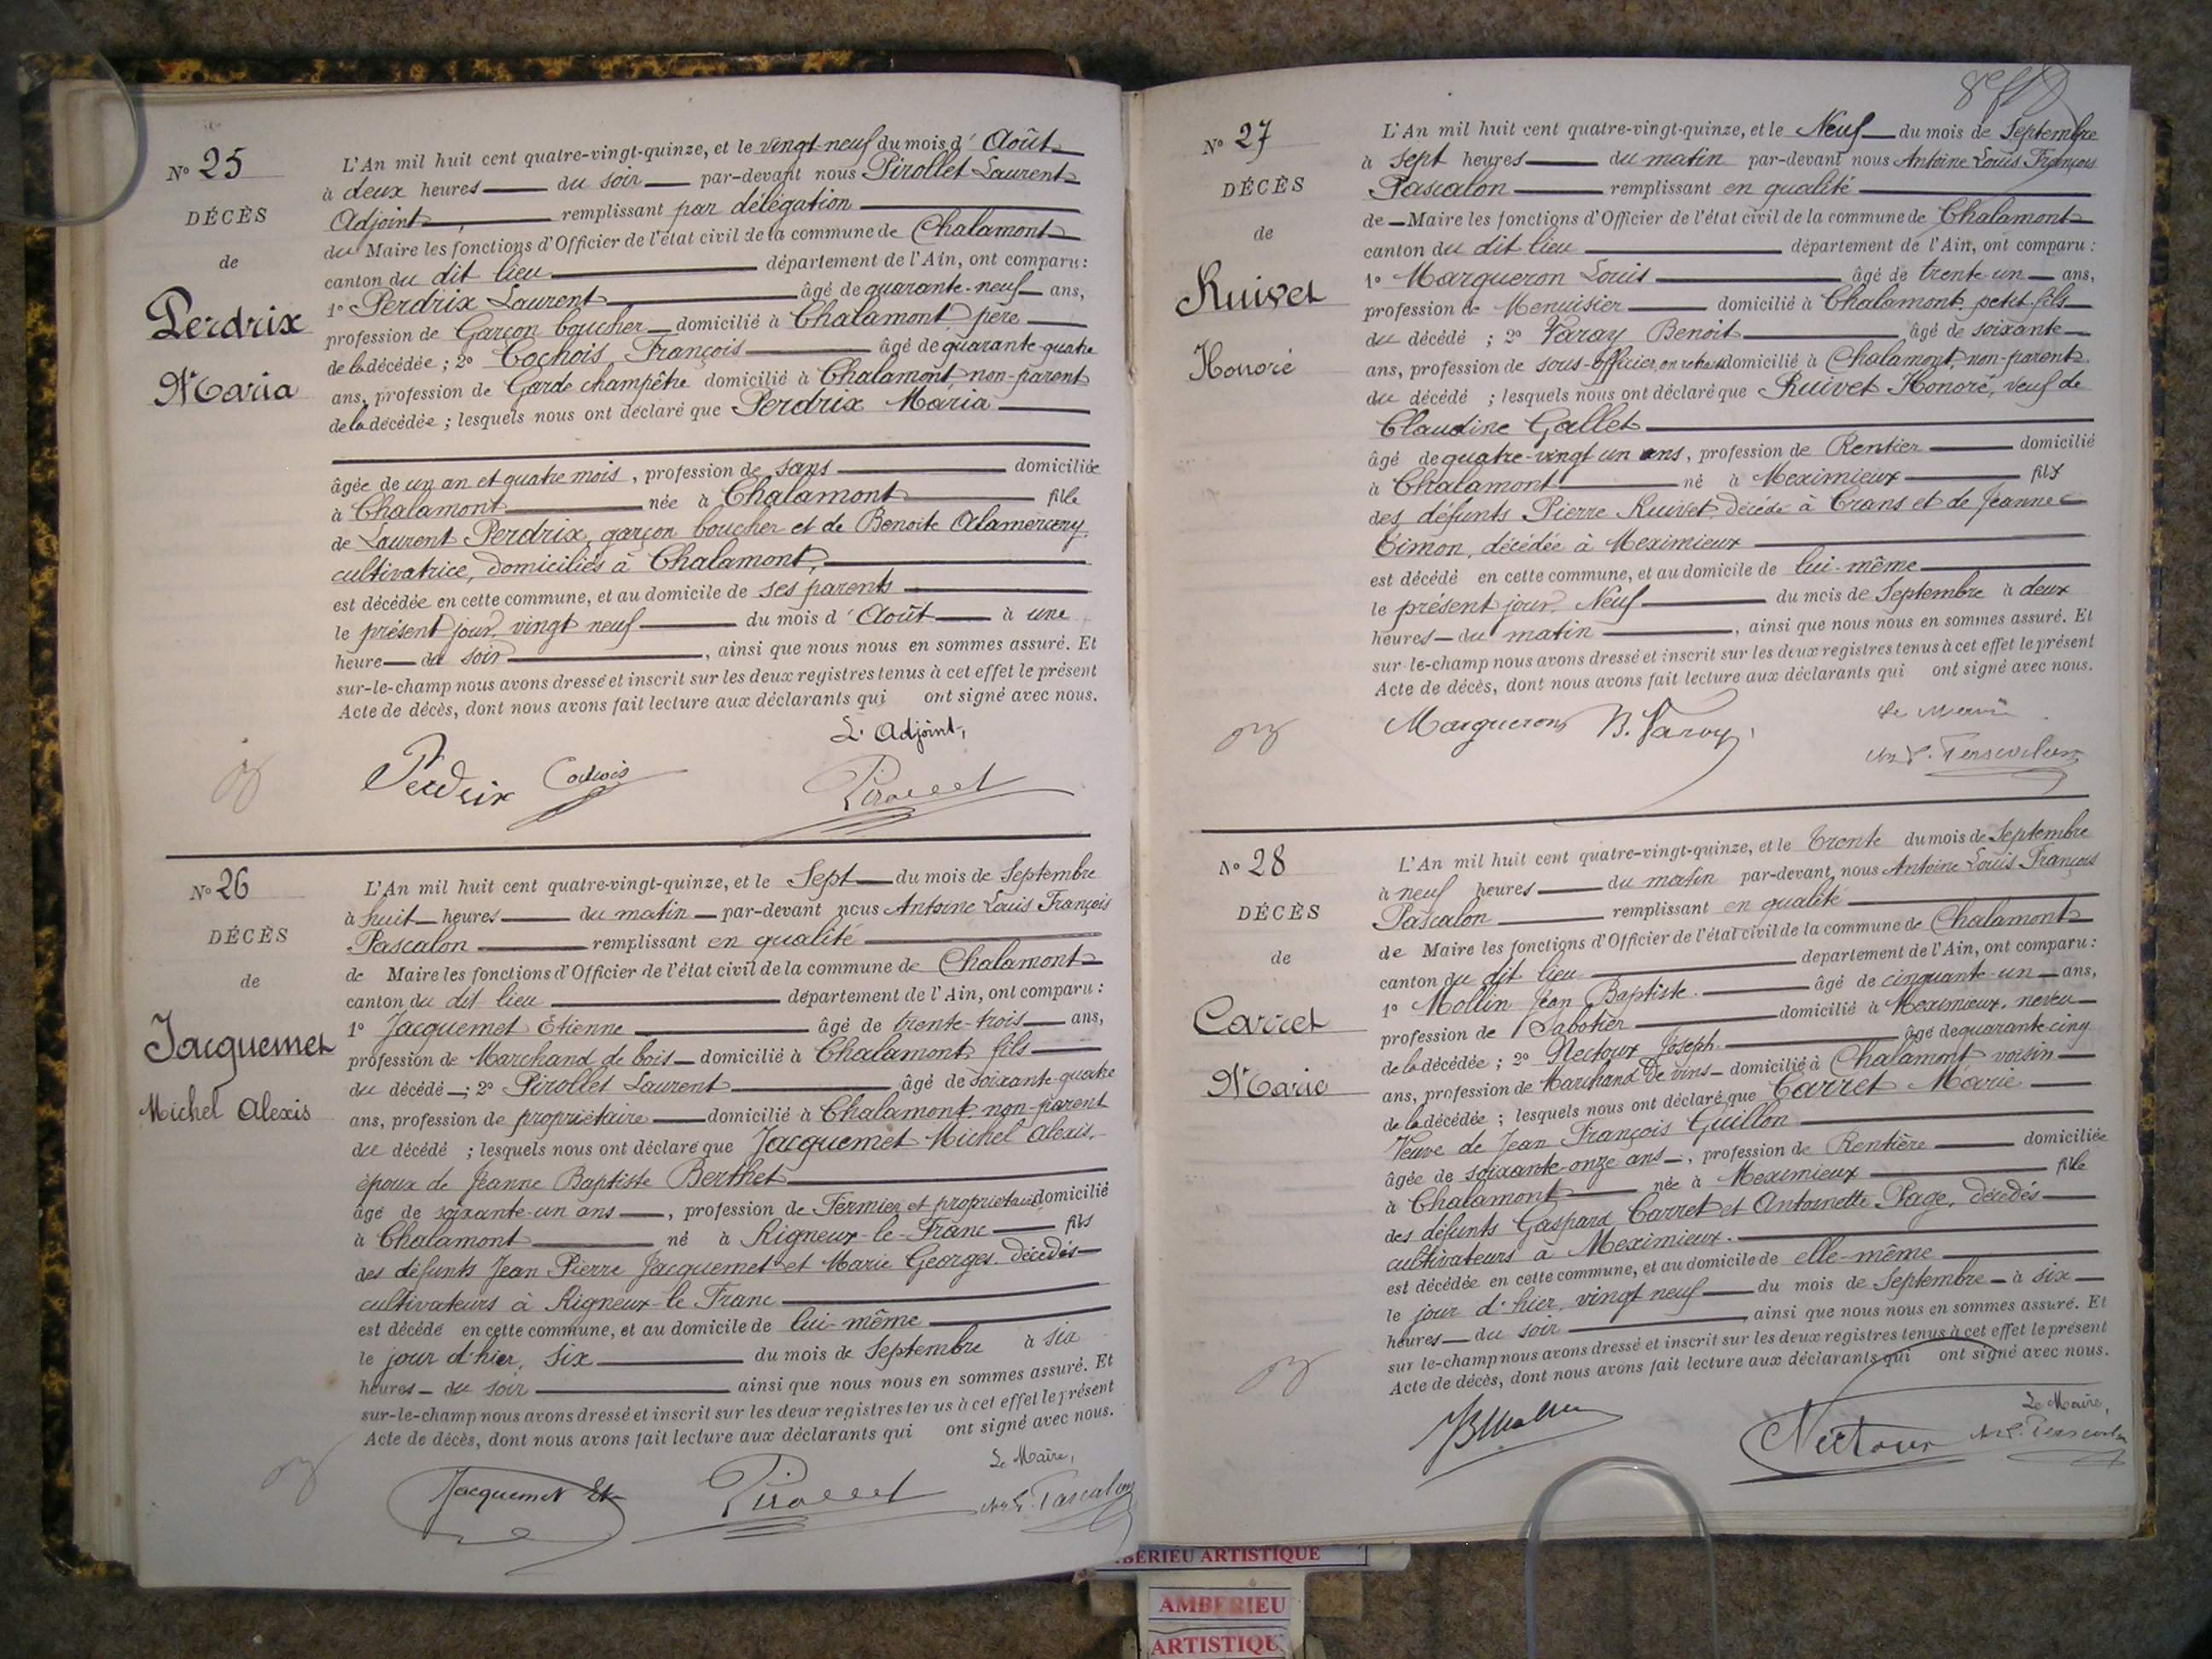 Nº 25
DÉCÈS
de
Perdrix
Maria
L'An mil huit cent quatre-vingt-quinze, et le vingt-neuf du mois d' Août
à deux heures du soir par-devant nous Pirollet Laurent
Adjoint, remplissant par délégation
du Maire les fonctions d'Officier de l'état civil de la commune de Chalamont
canton du dit lieu département de l'Ain, ont comparu :
1º Perdrix Laurent âgé de quarante-neuf ans,
profession de Garçon boucher domicilié à Chalamont, père
de la décédée ; 2º Cochois François âgé de quarante-quatre
ans, profession de Garde champêtre domicilié à Chalamont, non-parent
de la décédée ; lesquels nous ont déclaré que Perdrix Maria
âgée de un an et quatre mois, profession de sans domiciliée
à Chalamont née à Chalamont fille
de Laurent Perdrix, garçon boucher et de Benoite Alamercery
cultivatrice, domiciliés à Chalamont,
est décédée en cette commune, et au domicile de ses parents
le présent jour, vingt neuf du mois d' Août à une
heure du soir, ainsi que nous nous en sommes assuré. Et
sur-le-champ nous avons dressé et inscrit sur les deux registres tenus à cet effet le présent
Acte de décès, dont nous avons fait lecture aux déclarants qui ont signé avec nous.
L'Adjoint,
Perdrix Cochois Pirollet
Nº 26
DÉCÈS
de
Jacquemet
Michel Alexis
L'An mil huit cent quatre-vingt-quinze, et le Sept du mois de Septembre
à huit heures du matin par-devant nous Antoine Louis François
Pascalon remplissant en qualité
de Maire les fonctions d'Officier de l'état civil de la commune de Chalamont
canton du dit lieu département de l'Ain, ont comparu :
1º Jacquemet Etienne âgé de trente-trois ans,
profession de Marchand de bois domicilié à Chalamont, fils
du décédé ; 2º Pirollet Laurent âgé de soixante-quatre
ans, profession de propriétaire domicilié à Chalamont, non-parent
du décédé ; lesquels nous ont déclaré que Jacquemet Michel Alexis,
époux de Jeanne Baptiste Berthet
âgé de soixante-un ans, profession de Fermier et propriétaire domicilié
à Chalamont né à Rigneux-le-Franc fils
des défunts Jean Pierre Jacquemet et Marie Georges, décédés
cultivateurs à Rigneux-le Franc
est décédé en cette commune, et au domicile de lui-même
le jour d'hier, six du mois de Septembre à six
heures du soir ainsi que nous nous en sommes assuré. Et
sur-le-champ nous avons dressé et inscrit sur les deux registres tenus à cet effet le présent
Acte de décès, dont nous avons fait lecture aux déclarants qui ont signé avec nous.
Le Maire,
Jacquemet Et Pirollet Pascalon
Nº 27
DÉCÈS
de
Ruivet
Honoré
L'An mil huit cent quatre-vingt-quinze, et le Neuf du mois de Septembre
à sept heures du matin par-devant nous Antoine Louis François
Pascalon remplissant en qualité
de Maire les fonctions d'Officier de l'état civil de la commune de Chalamont
canton du dit lieu département de l'Ain, ont comparu :
1º Margueron Louis âgé de trente-un ans,
profession de Menuisier domicilié à Chalamont, petit-fils
du décédé ; 2º Varay Benoit âgé de soixante
ans, profession de sous-officier en retraite domicilié à Chalamont, non-parent
du décédé ; lesquels nous ont déclaré que Ruivet Honoré, veuf de
Claudine Gallet
âgé de quatre-vingt un ans, profession de Rentier domicilié
à Chalamont né à Meximieux fils
des défunts Pierre Ruivet, décédé à Crans et de Jeanne
Cimon, décédée à Meximieux
est décédé en cette commune, et au domicile de lui-même
le présent jour, Neuf du mois de Septembre à deux
heures du matin, ainsi que nous nous en sommes assuré. Et
sur-le-champ nous avons dressé et inscrit sur les deux registres tenus à cet effet le présent
Acte de décès, dont nous avons fait lecture aux déclarants qui ont signé avec nous.
Le Maire
Margueron B. Varay
Nº 28
DÉCÈS
de
Carret
Marie
L'An mil huit cent quatre-vingt-quinze, et le Trente du mois de Septembre
à neuf heures du matin par-devant nous Antoine Louis François
Pascalon remplissant en qualité
de Maire les fonctions d'Officier de l'état civil de la commune de Chalamont
canton du dit lieu département de l'Ain, ont comparu :
1º Mollin Jean Baptiste. âgé de cinquante-un ans,
profession de Sabotier domicilié à Meximieux, neveu
de la décédée ; 2º Nectoux Joseph. âgé de quarante-cinq
ans, profession de Marchand de vins domicilié à Chalamont voisin
de la décédée ; lesquels nous ont déclaré que Carret Marie
Veuve de Jean François Guillon
âgée de soixante-onze ans, profession de Rentière domiciliée
à Chalamont née à Meximieux fille
des défunts Gaspard Carret et Antoinette Page, décédés
cultivateurs à Meximieux.
est décédée en cette commune, et au domicile de elle-même
le jour d'hier, vingt neuf du mois de Septembre à six
heures du soir ainsi que nous nous en sommes assuré. Et
sur le-champ nous avons dressé et inscrit sur les deux registres tenus à cet effet le présent
Acte de décès, dont nous avons fait lecture aux déclarants qui ont signé avec nous.
Le Maire,
Nectoux
AMBERIEU ARTISTIQUE
AMBERIEU
ARTISTIQU